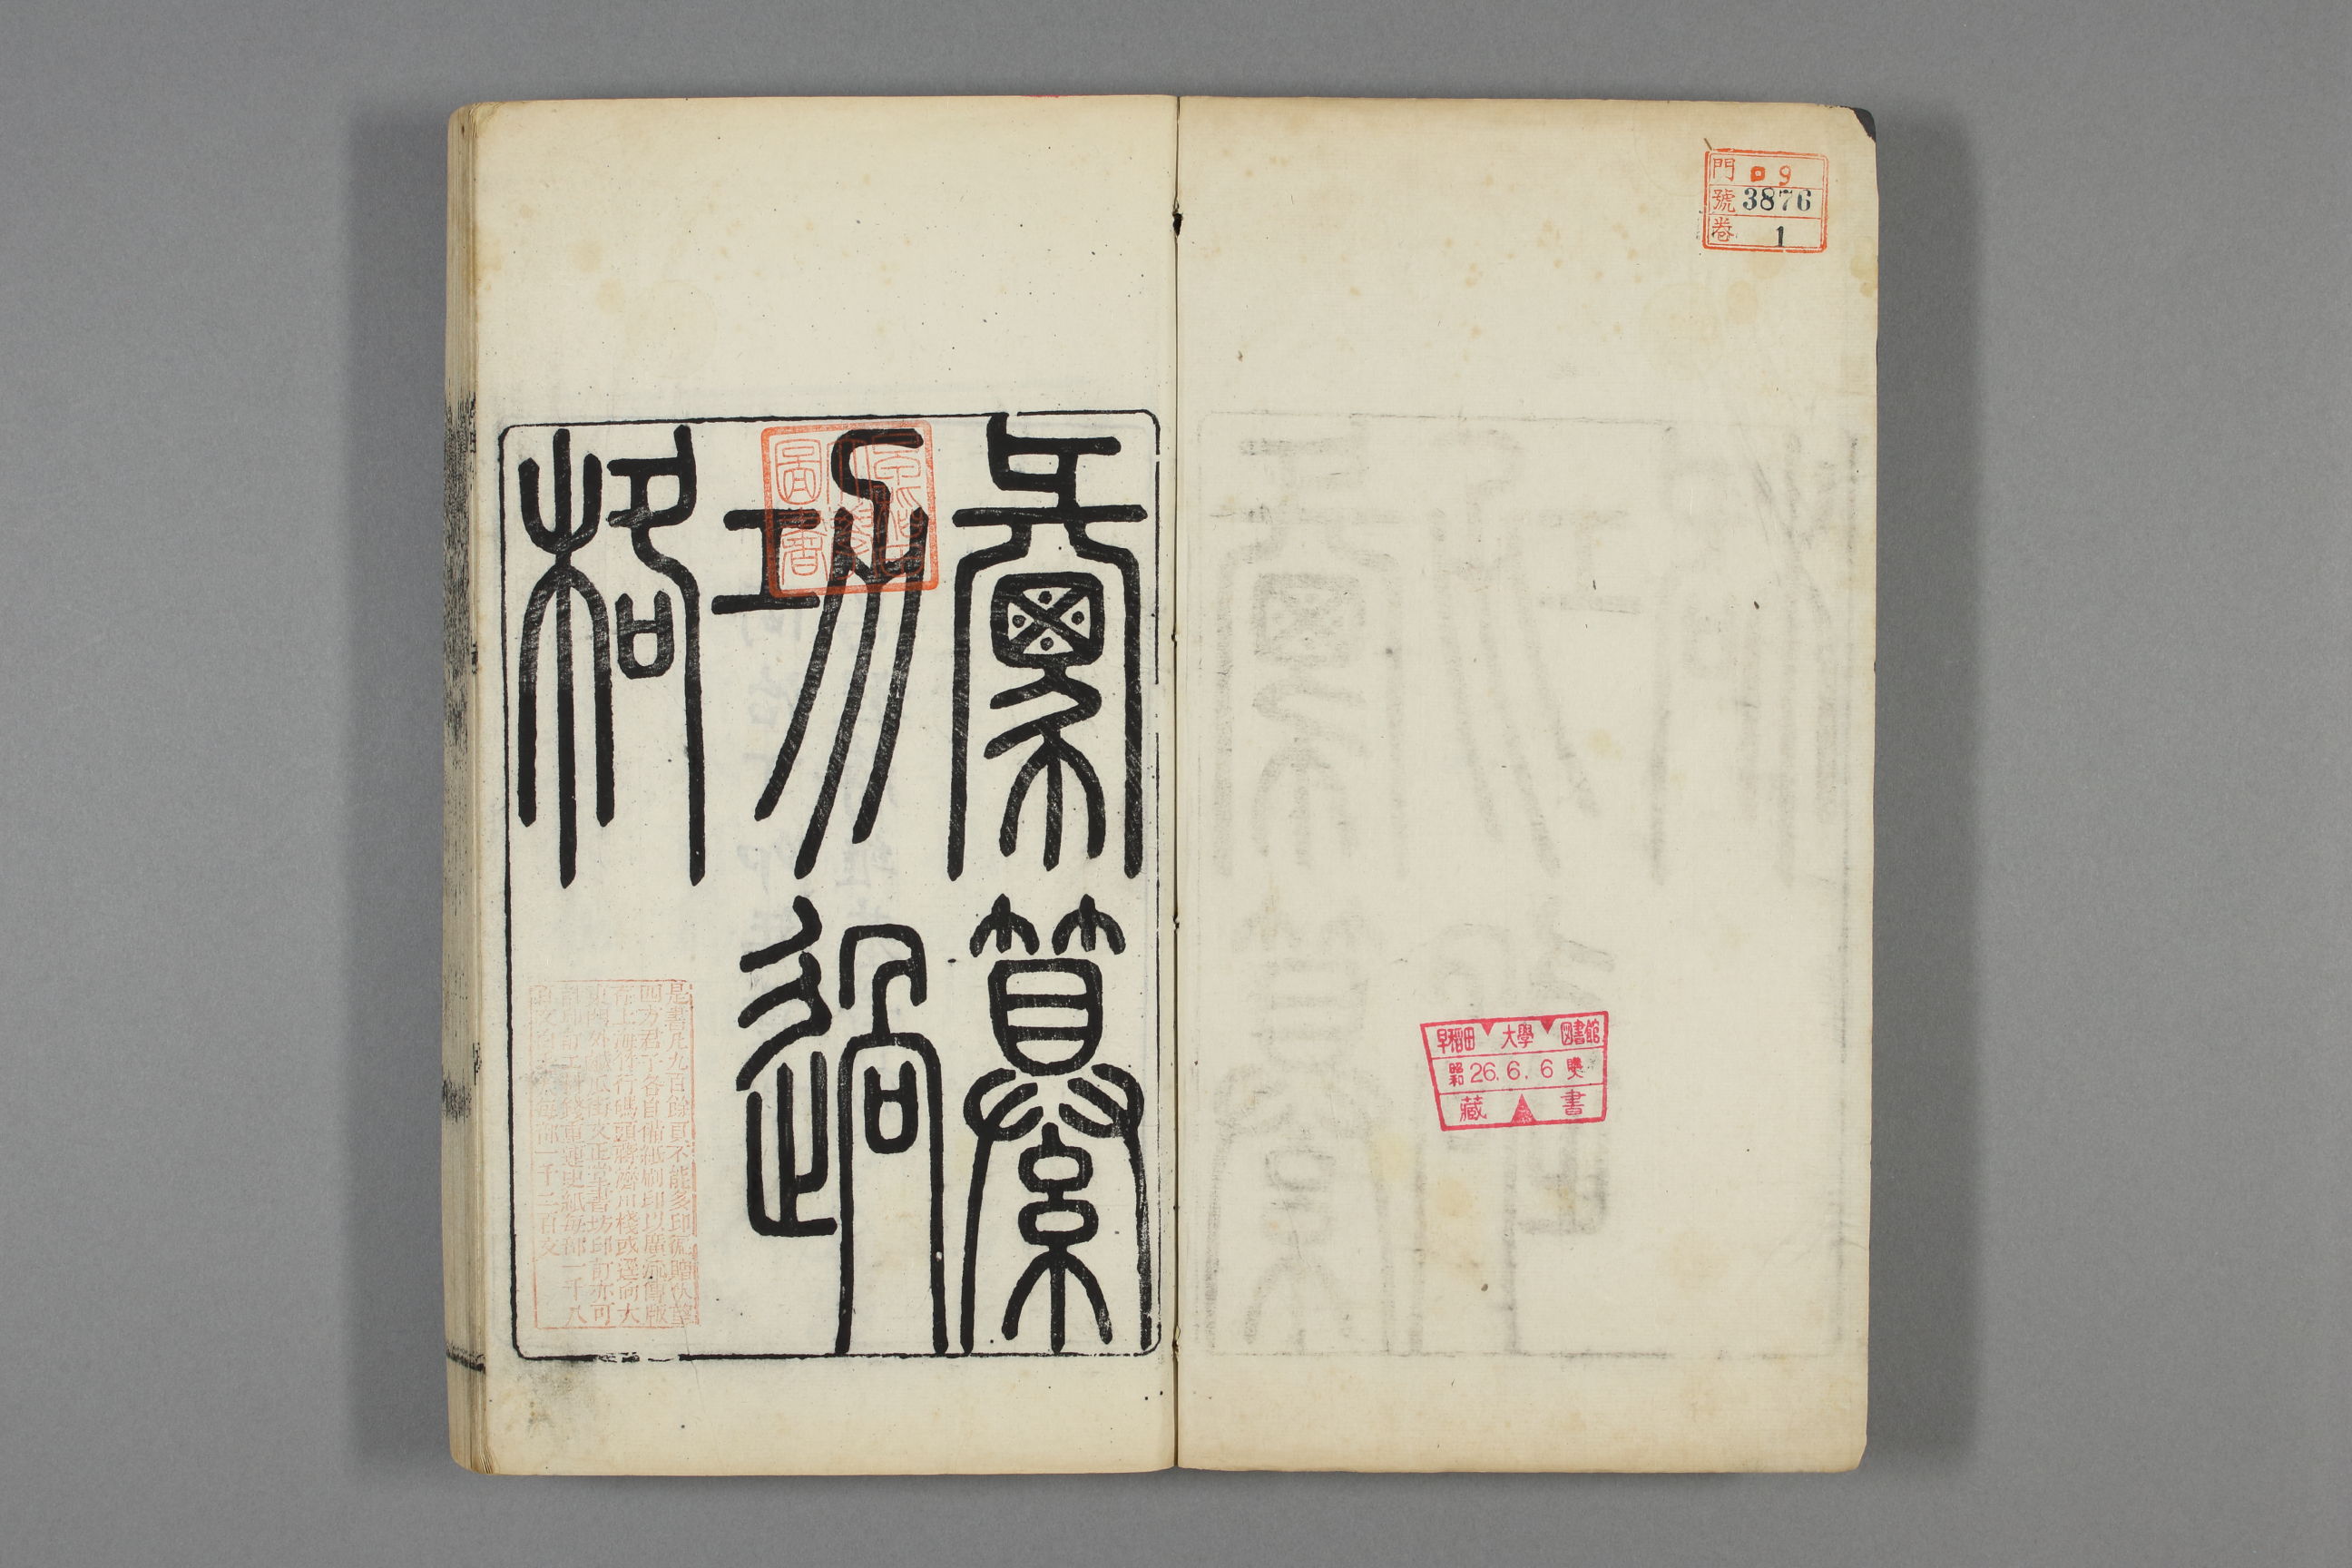 門 ロ 9
號 3876
卷 1
早稻田 大學 圖書館
昭和 26.6.6 購
藏 書
彙纂
功過
格
早稻田
大學
圖書
是書凡九百餘頁不能多印徧贈伏望
四方君子各自備紙刷印以廣流傳版
存上海竹行碼頭蔣濟川棧或逕向大
東門外鹹瓜街文正堂書坊印訂亦可
印訂工料錢重連史紙每部一千八
百文白每部一千二百文